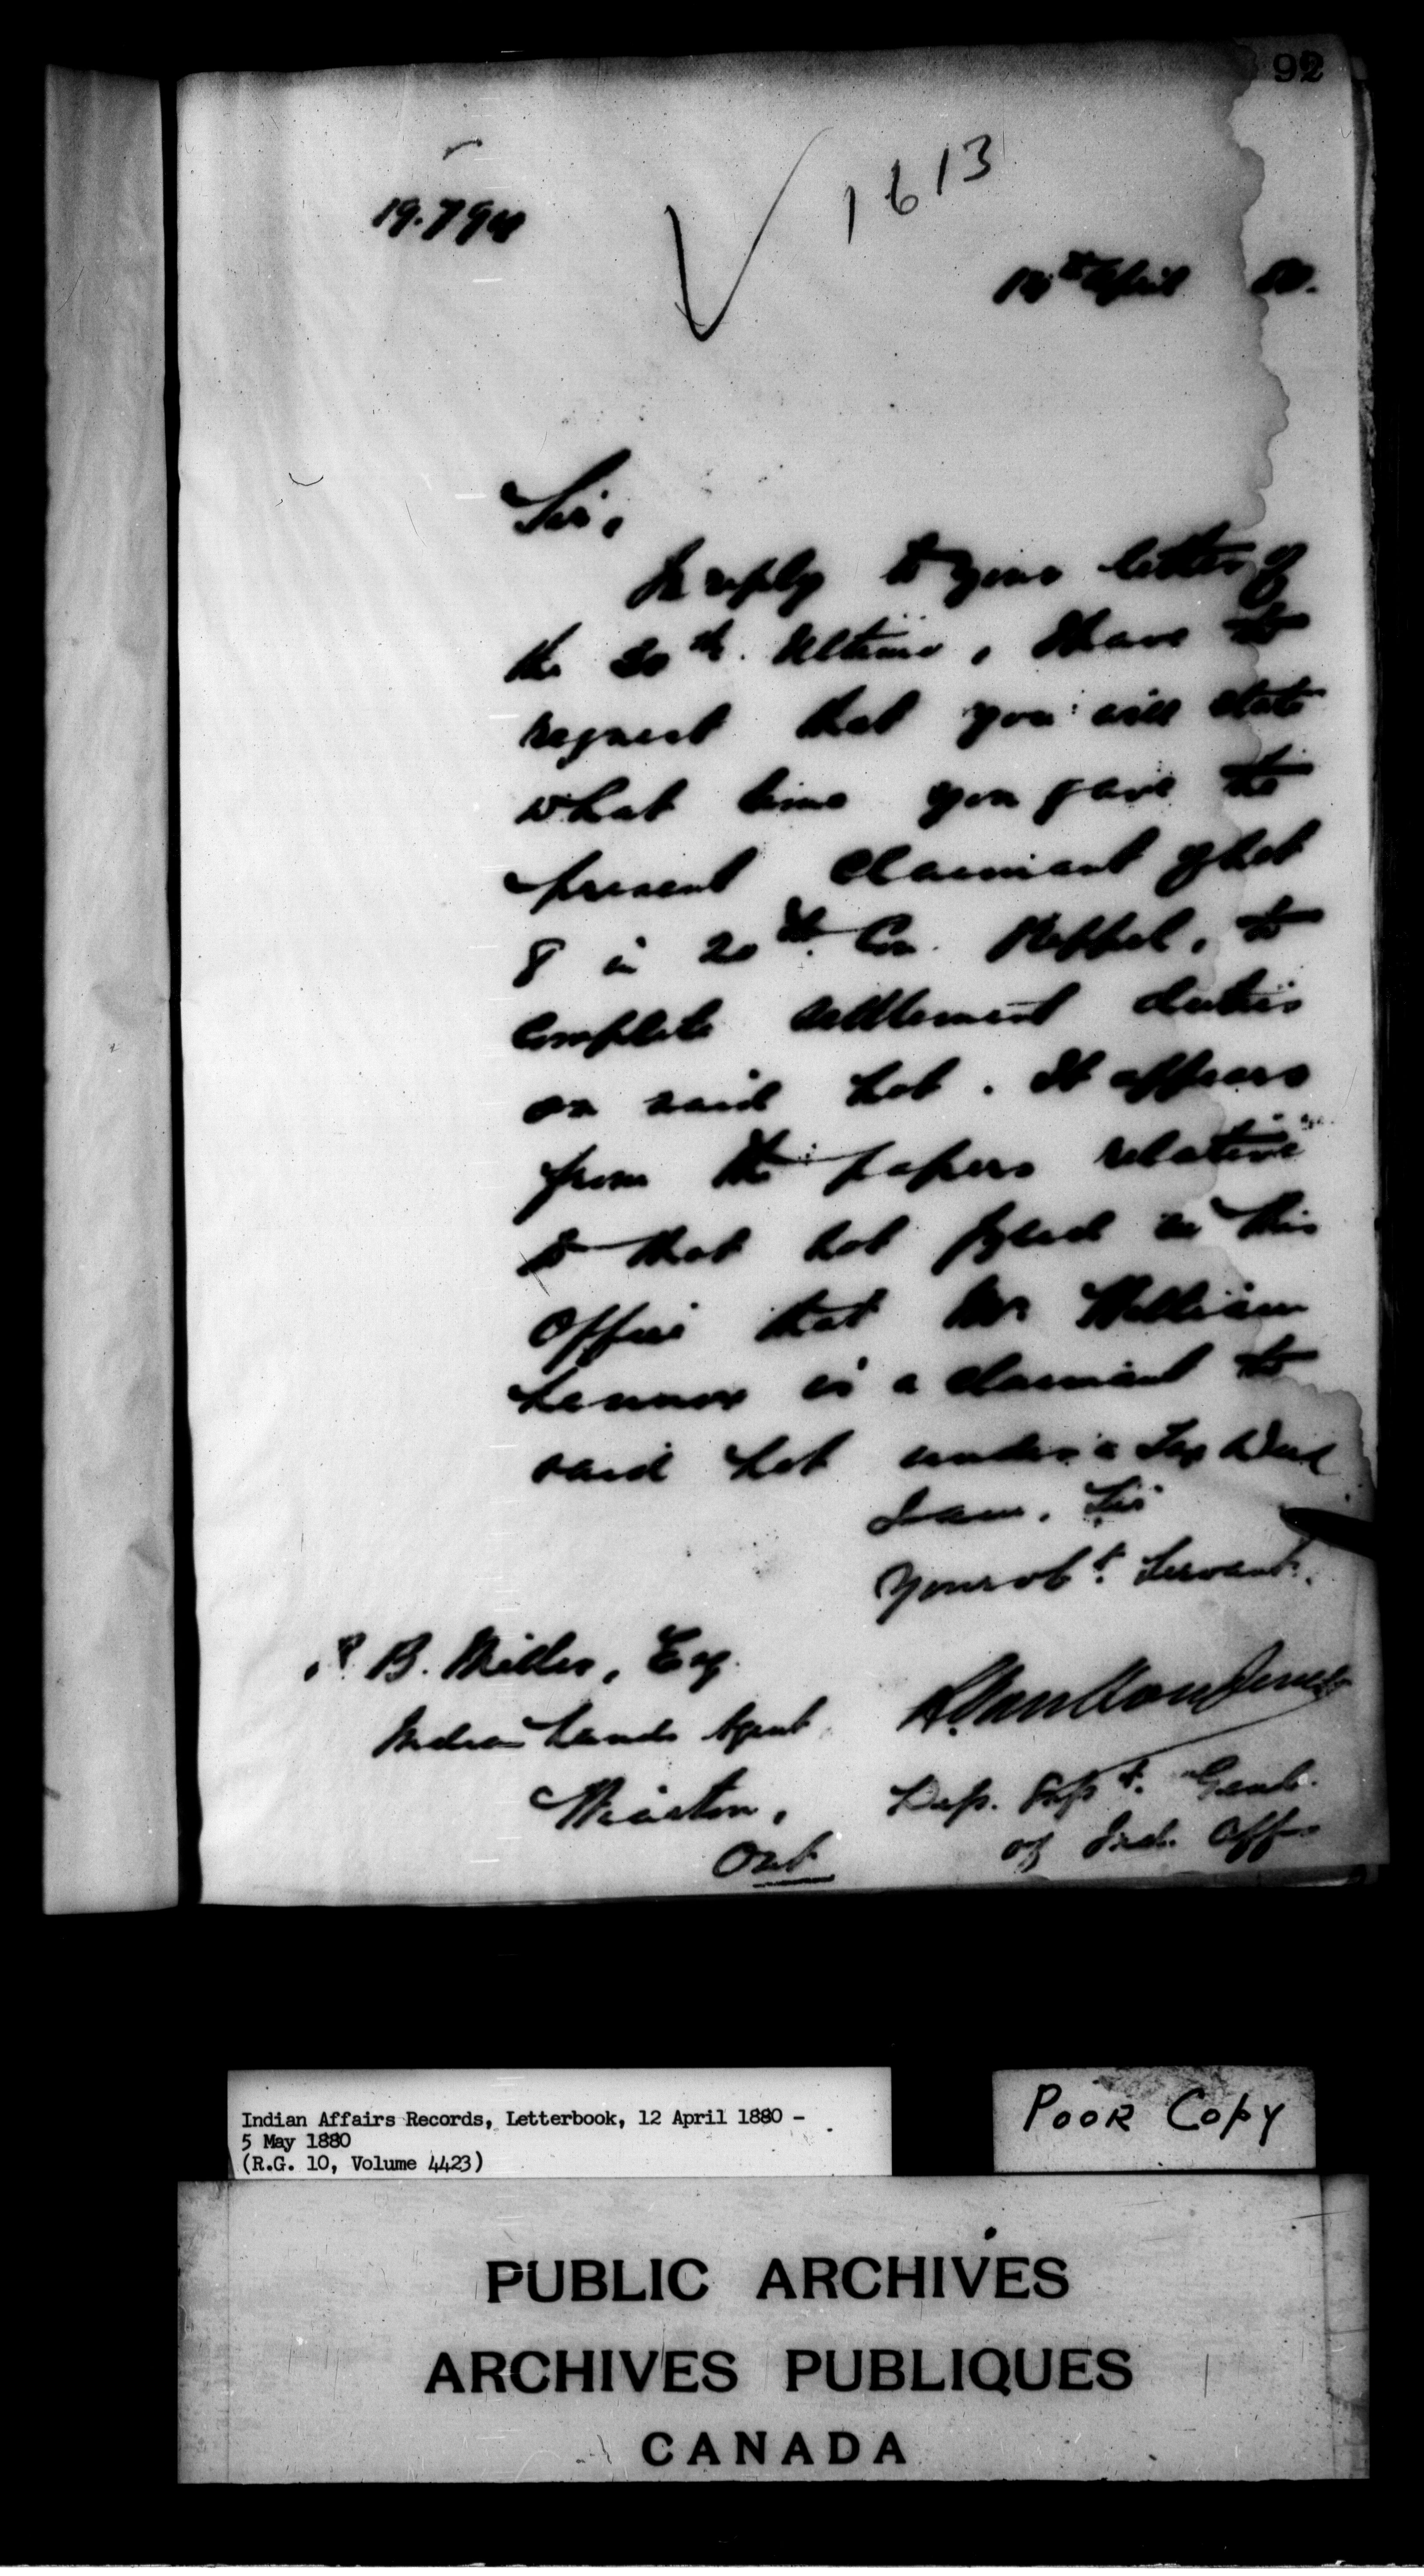 92
1613
19.794
14th April 80.
Sir,
In reply to your letter of
the 30th. Ultimo, I have to
request that you will state
what time you gave the
present claimant of Lot
8 in 20th. Con. Keppel, to
complete settlement duties
on said Lot. It appears
from the papers relative
to that Lot fyled in this
Office that Mr William
Lennox is a claimant to
said Lot under a Tax Deed
I am, Sir
Your obt. Servant.
B. Miller, Esq.
Indian Lands Agent
Wiarton,
Ont
L. Vankoughnet
Dep. Supt. Genl.
of Ind. Affrs
Indian Affairs Records, Letterbook, 12 April 1880 -
5 May 1880
(R.G. 10, Volume 4423)
POOR Copy
PUBLIC ARCHIVES
ARCHIVES PUBLIQUES
CANADA